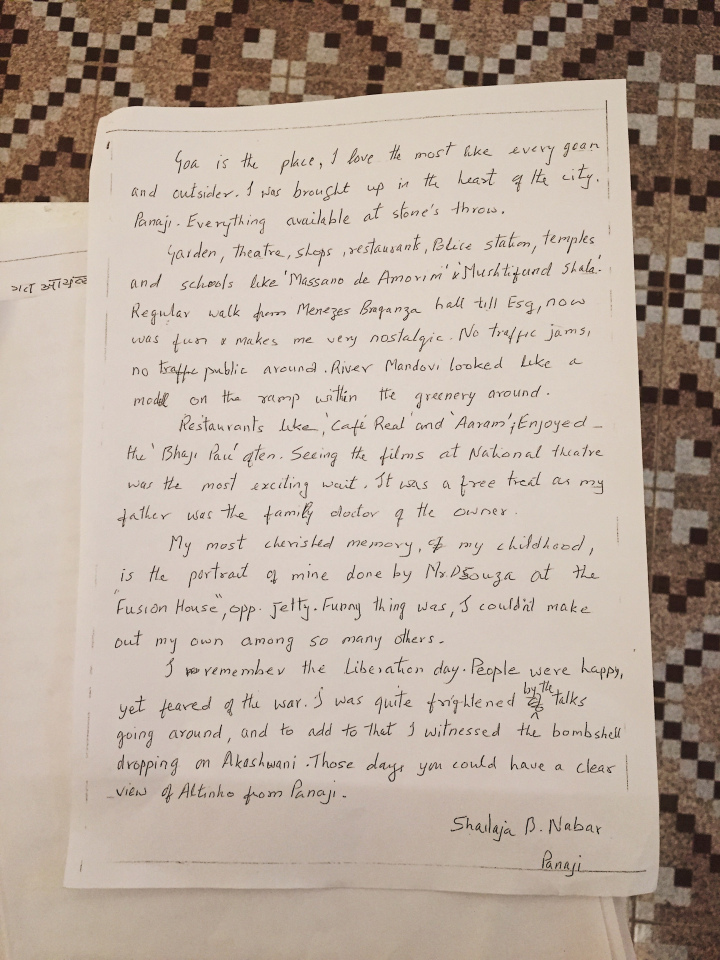 Goa is the place, I love the most like every goan
and outsider. I was brought up in the heart of the city.
Panaji. Everything available at stone's throw.
Garden, theatre, shops, restaurants, Police station, temples
and schools like 'Massano de Amorim' & 'Mushtifund Shala.'
Regular walk from Menezes Braganza hall till Esg, now
was fun & makes me very nostalgic. No traffic jams,
no traffic public around. River Mandovi looked like a
model on the ramp within the greenery around.
Restaurants like, 'Café Real' and 'Aaram'; Enjoyed
the 'Bhaji Pau' often. Seeing the films at National theatre
was the most exciting wait. It was a free treat as my
father was the family doctor of the owner.
My most cherished memory, of my childhood,
is the portrait of mine done by Mr. DSouza at the
"Fusion House", opp. jetty. Funny thing was, I couldn't make
out my own among so many others.
I remember the Liberation day. People were happy,
yet feared of the war. I was quite frightened by the talks
going around, and to add to that I witnessed the bombshell
dropping on Akashwani. Those days you could have a clear
view of Altinho from Panaji.
Shailaja B. Nabar
Panaji
गत